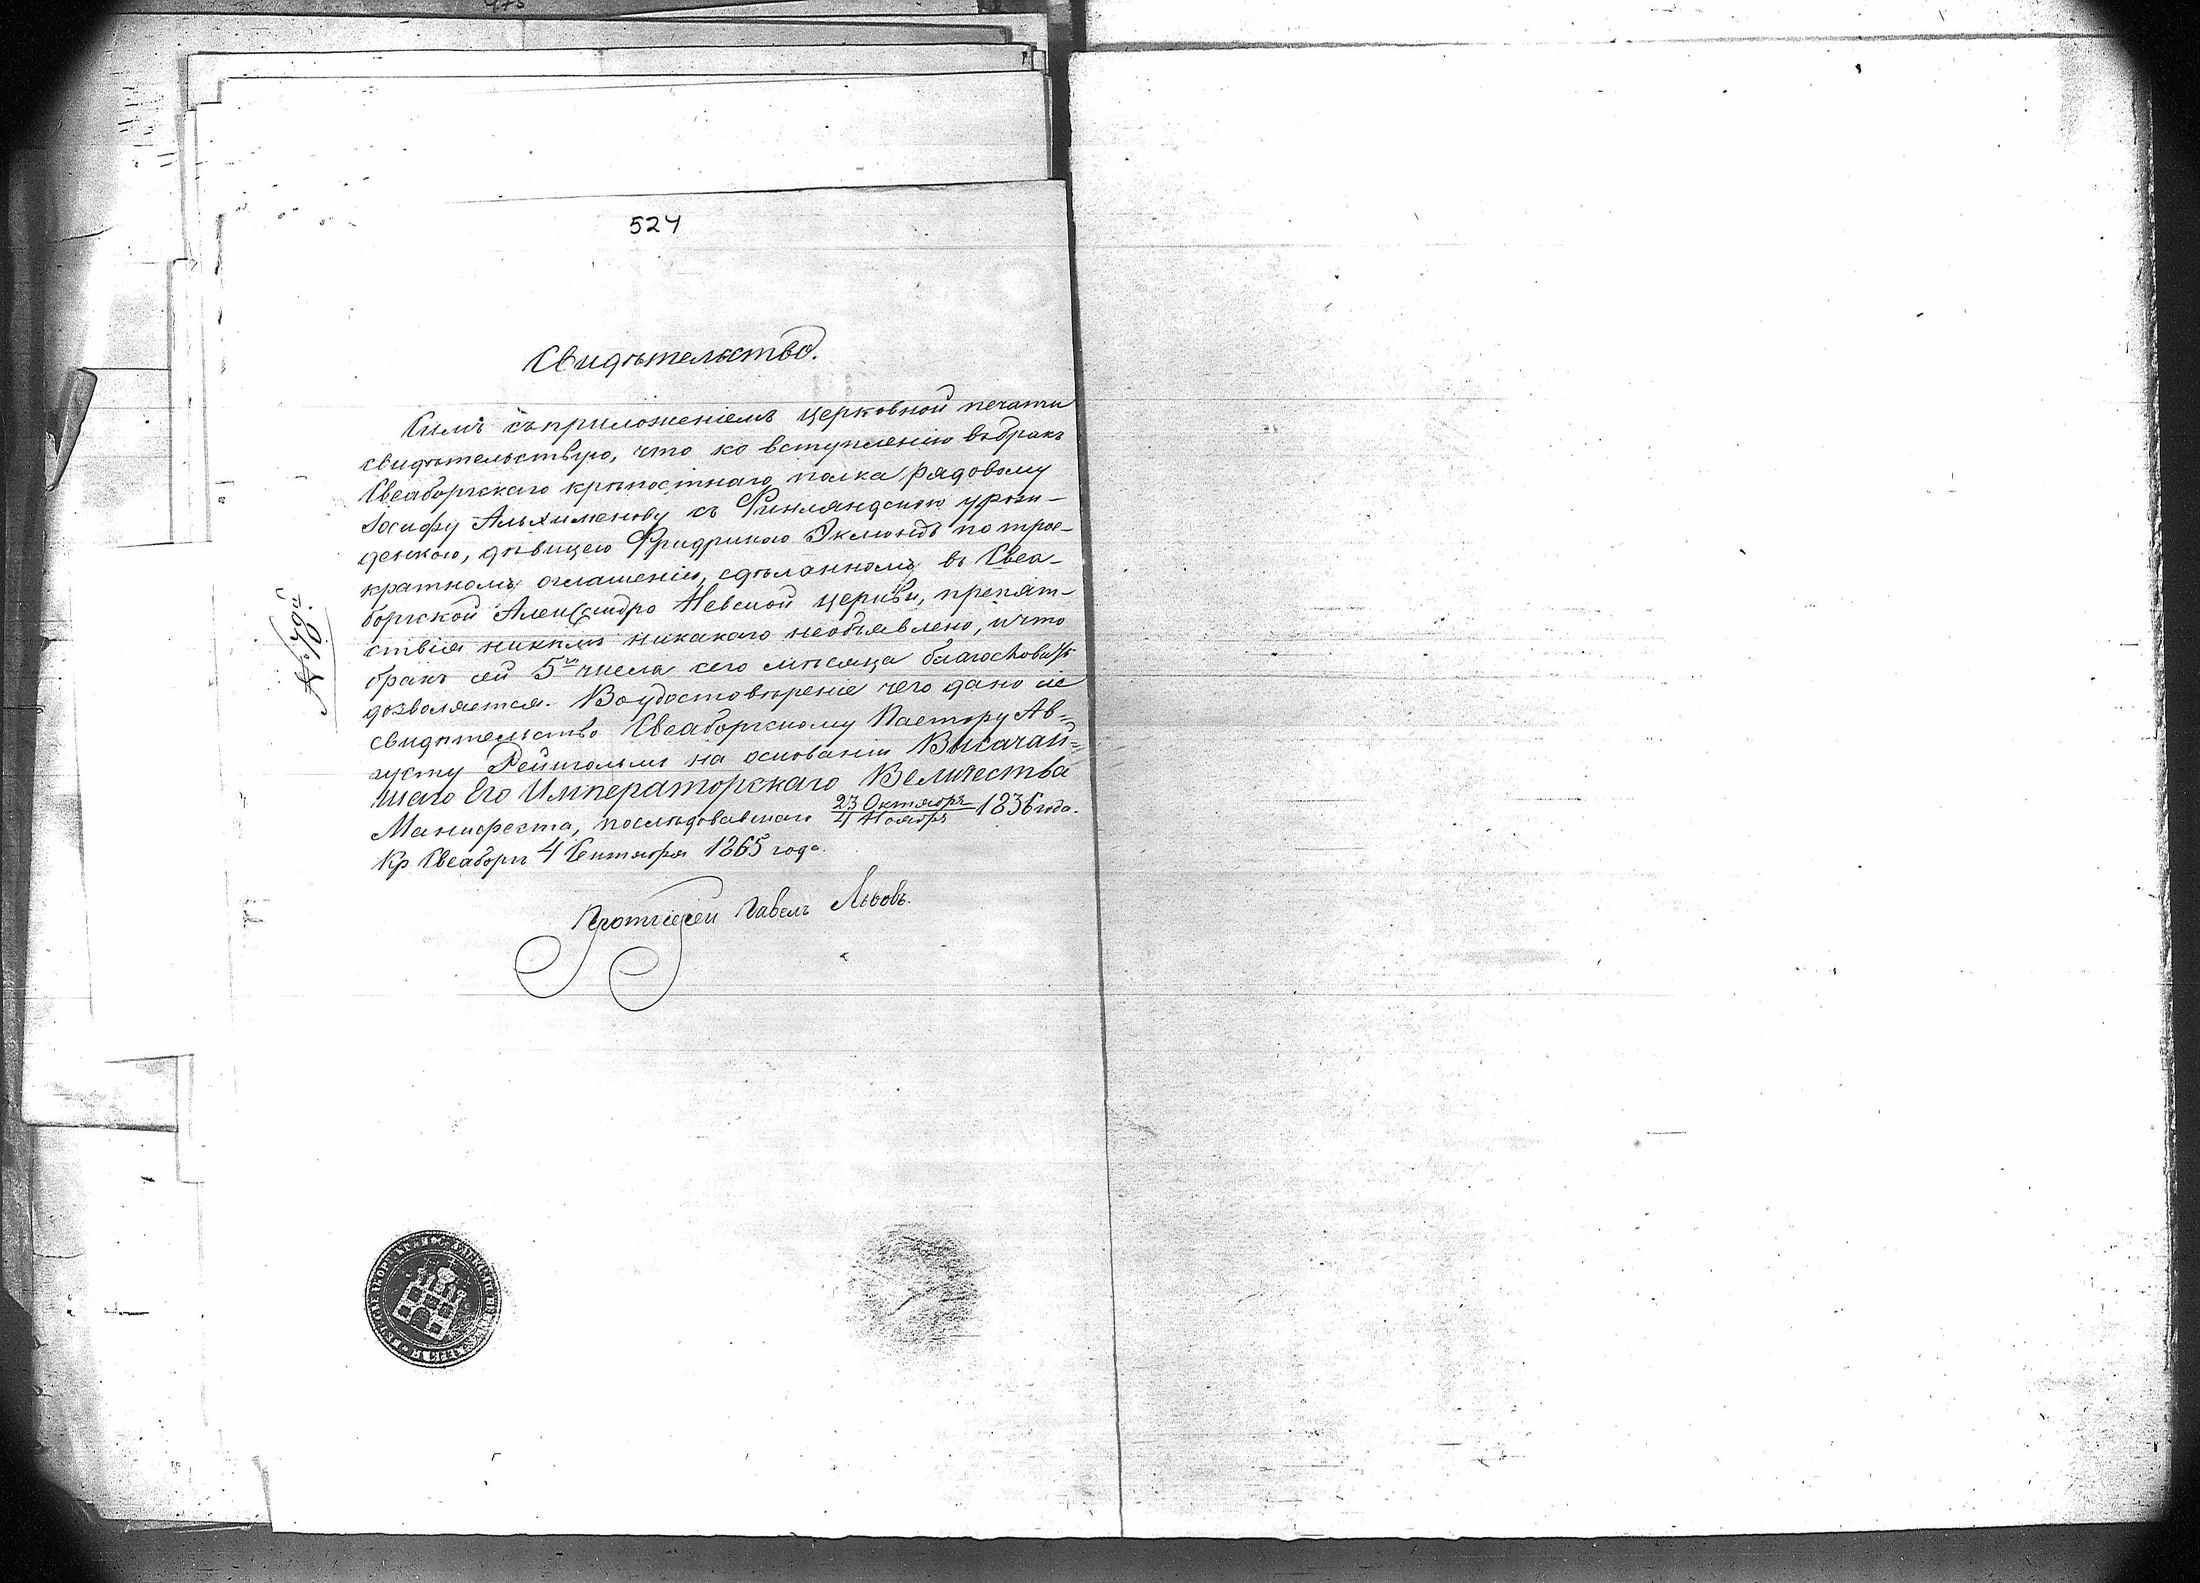 524
Свидѣтельство.
Симъ съ приложеніемъ церковной печати
свидѣтельствую, что ко вступленію въ бракъ
Свеаборгскаго крѣпостнаго полка рядовому
Іосифу Альхименову съ Финляндскою урож-
денкою, дѣвицею Фридрикою Экмондъ по трое-
кратномъ оглашеніи, сдѣланномъ въ Свеа-
боргской Александро Невской церкви, препят-
ствія никѣмъ никакаго необъявлено, и что
бракъ сей 5го числа сего мѣсяца благословить
дозволяется. Въ удостовѣреніе чего дано сіе
свидѣтельство Свеаборгскому Пастору Ав=
густу Рейнгольмъ на основаніи Высочай=
шаго Его Императорскаго Величества
Манифеста, послѣдовавшаго 23 Октября / 4 Ноября 1836 года.
Кр. Свеаборгъ 4 Сентября 1865 года.
Протоіерей Павелъ Львовъ.